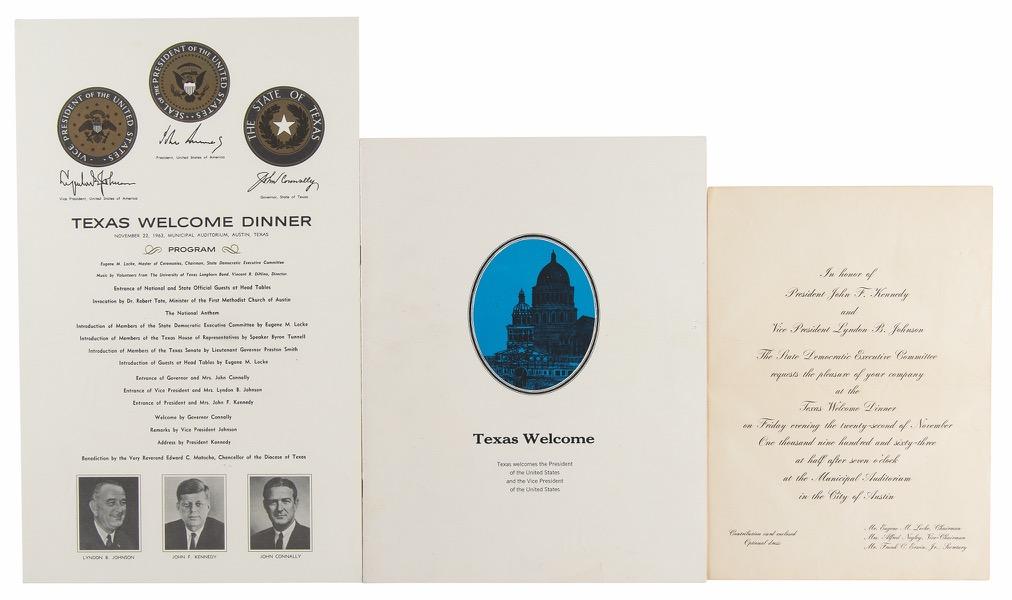 SEAL OF THE PRESIDENT OF THE UNITED STATES
VICE PRESIDENT OF THE UNITED STATES
THE STATE OF TEXAS
President, United States of America
Lyndon B. Johnson
John Connally
Vice President, United States of America
Governor, State of Texas
TEXAS WELCOME DINNER
NOVEMBER 22, 1963, MUNICIPAL AUDITORIUM, AUSTIN, TEXAS
PROGRAM
Eugene M. Locke, Master of Ceremonies, Chairman, State Democratic Executive Committee
Music by Volunteers from The University of Texas Longhorn Band, Vincent R. DiNino, Director
Entrance of National and State Official Guests at Head Tables
Invocation by Dr. Robert Tate, Minister of the First Methodist Church of Austin
The National Anthem
Introduction of Members of the State Democratic Executive Committee by Eugene M. Locke
Introduction of Members of the Texas House of Representatives by Speaker Byron Tunnell
Introduction of Members of the Texas Senate by Lieutenant Governor Preston Smith
Introduction of Guests at Head Tables by Eugene M. Locke
Entrance of Governor and Mrs. John Connally
Entrance of Vice President and Mrs. Lyndon B. Johnson
Entrance of President and Mrs. John F. Kennedy
Welcome by Governor Connally
Remarks by Vice President Johnson
Address by President Kennedy
Benediction by the Very Reverend Edward C. Matocha, Chancellor of the Diocese of Texas
LYNDON B. JOHNSON
JOHN F. KENNEDY
JOHN CONNALLY
Texas Welcome
Texas welcomes the President
of the United States
and the Vice President
of the United States
In honor of
President John F. Kennedy
and
Vice President Lyndon B. Johnson
The State Democratic Executive Committee
requests the pleasure of your company
at the
Texas Welcome Dinner
on Friday evening the twenty-second of November
One thousand nine hundred and sixty-three
at half after seven o'clock
at the Municipal Auditorium
in the City of Austin
Contribution card enclosed
Optional dress
Mr. Eugene M. Locke, Chairman
Mrs. Alfred Negley, Vice-Chairman
Mr. Frank C. Erwin, Jr., Secretary